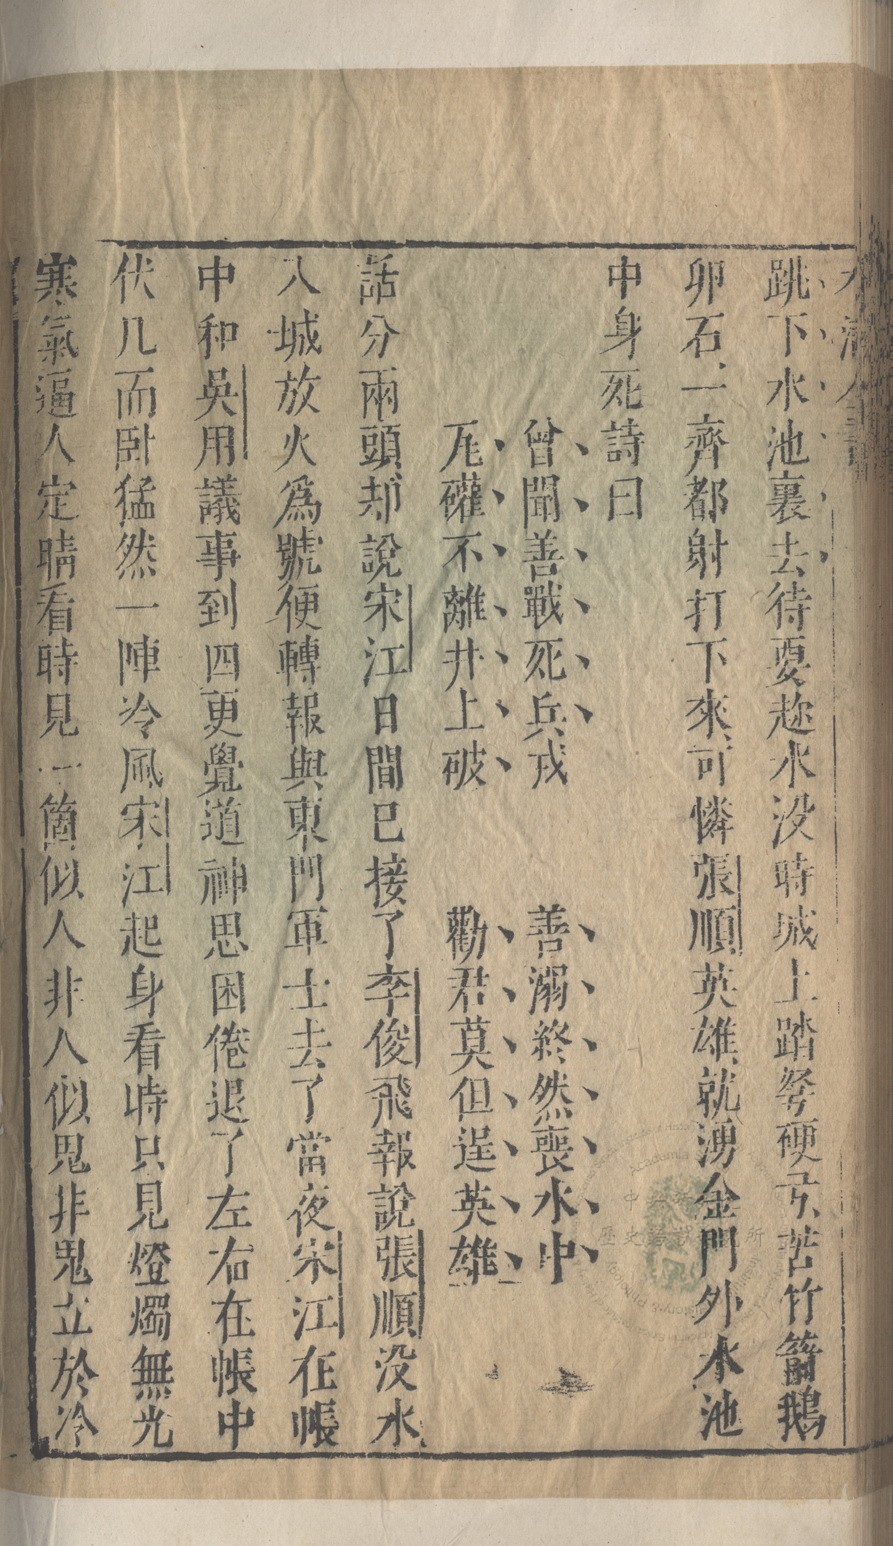 跳下水池裏去待要趂水没時城上踏弩硬弓苦竹箭鵝
卵石一齊都射打下來可憐張順英雄就湧金門外水池
中身死詩曰
曾聞善戰死兵戎　善溺終然喪水中
瓦礶不離井上破　勸君莫但逞英雄
話分兩頭却說宋江日間已接了李俊飛報說張順没水
入城放火爲號便轉報與東門軍士去了當夜宋江在帳
中和吳用議事到四更覺道神思困倦退了左右在帳中
伏几而卧猛然一陣冷風宋江起身看時只見燈燭無光
寒氣逼人定睛看時見一箇似人非人似鬼非鬼立於冷